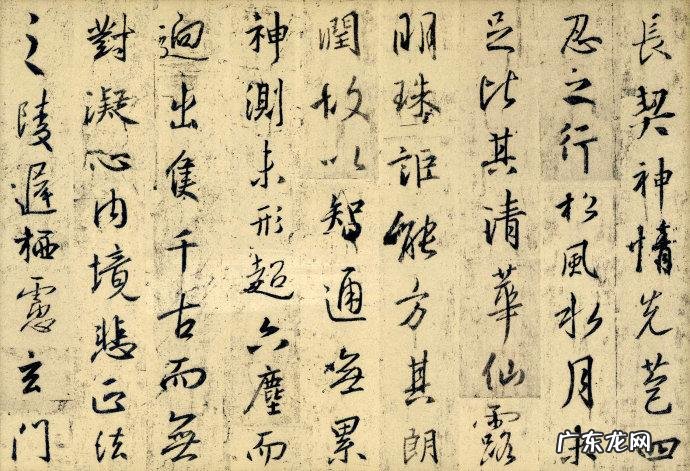 長契神情先苞四
忍之行松風水月未
足比其清華仙露
明珠詎能方其朗
潤故以智通無累
神測未形超六塵而
迥出隻千古而無
對凝心內境悲正法
之陵遲栖慮玄門
广东龙网